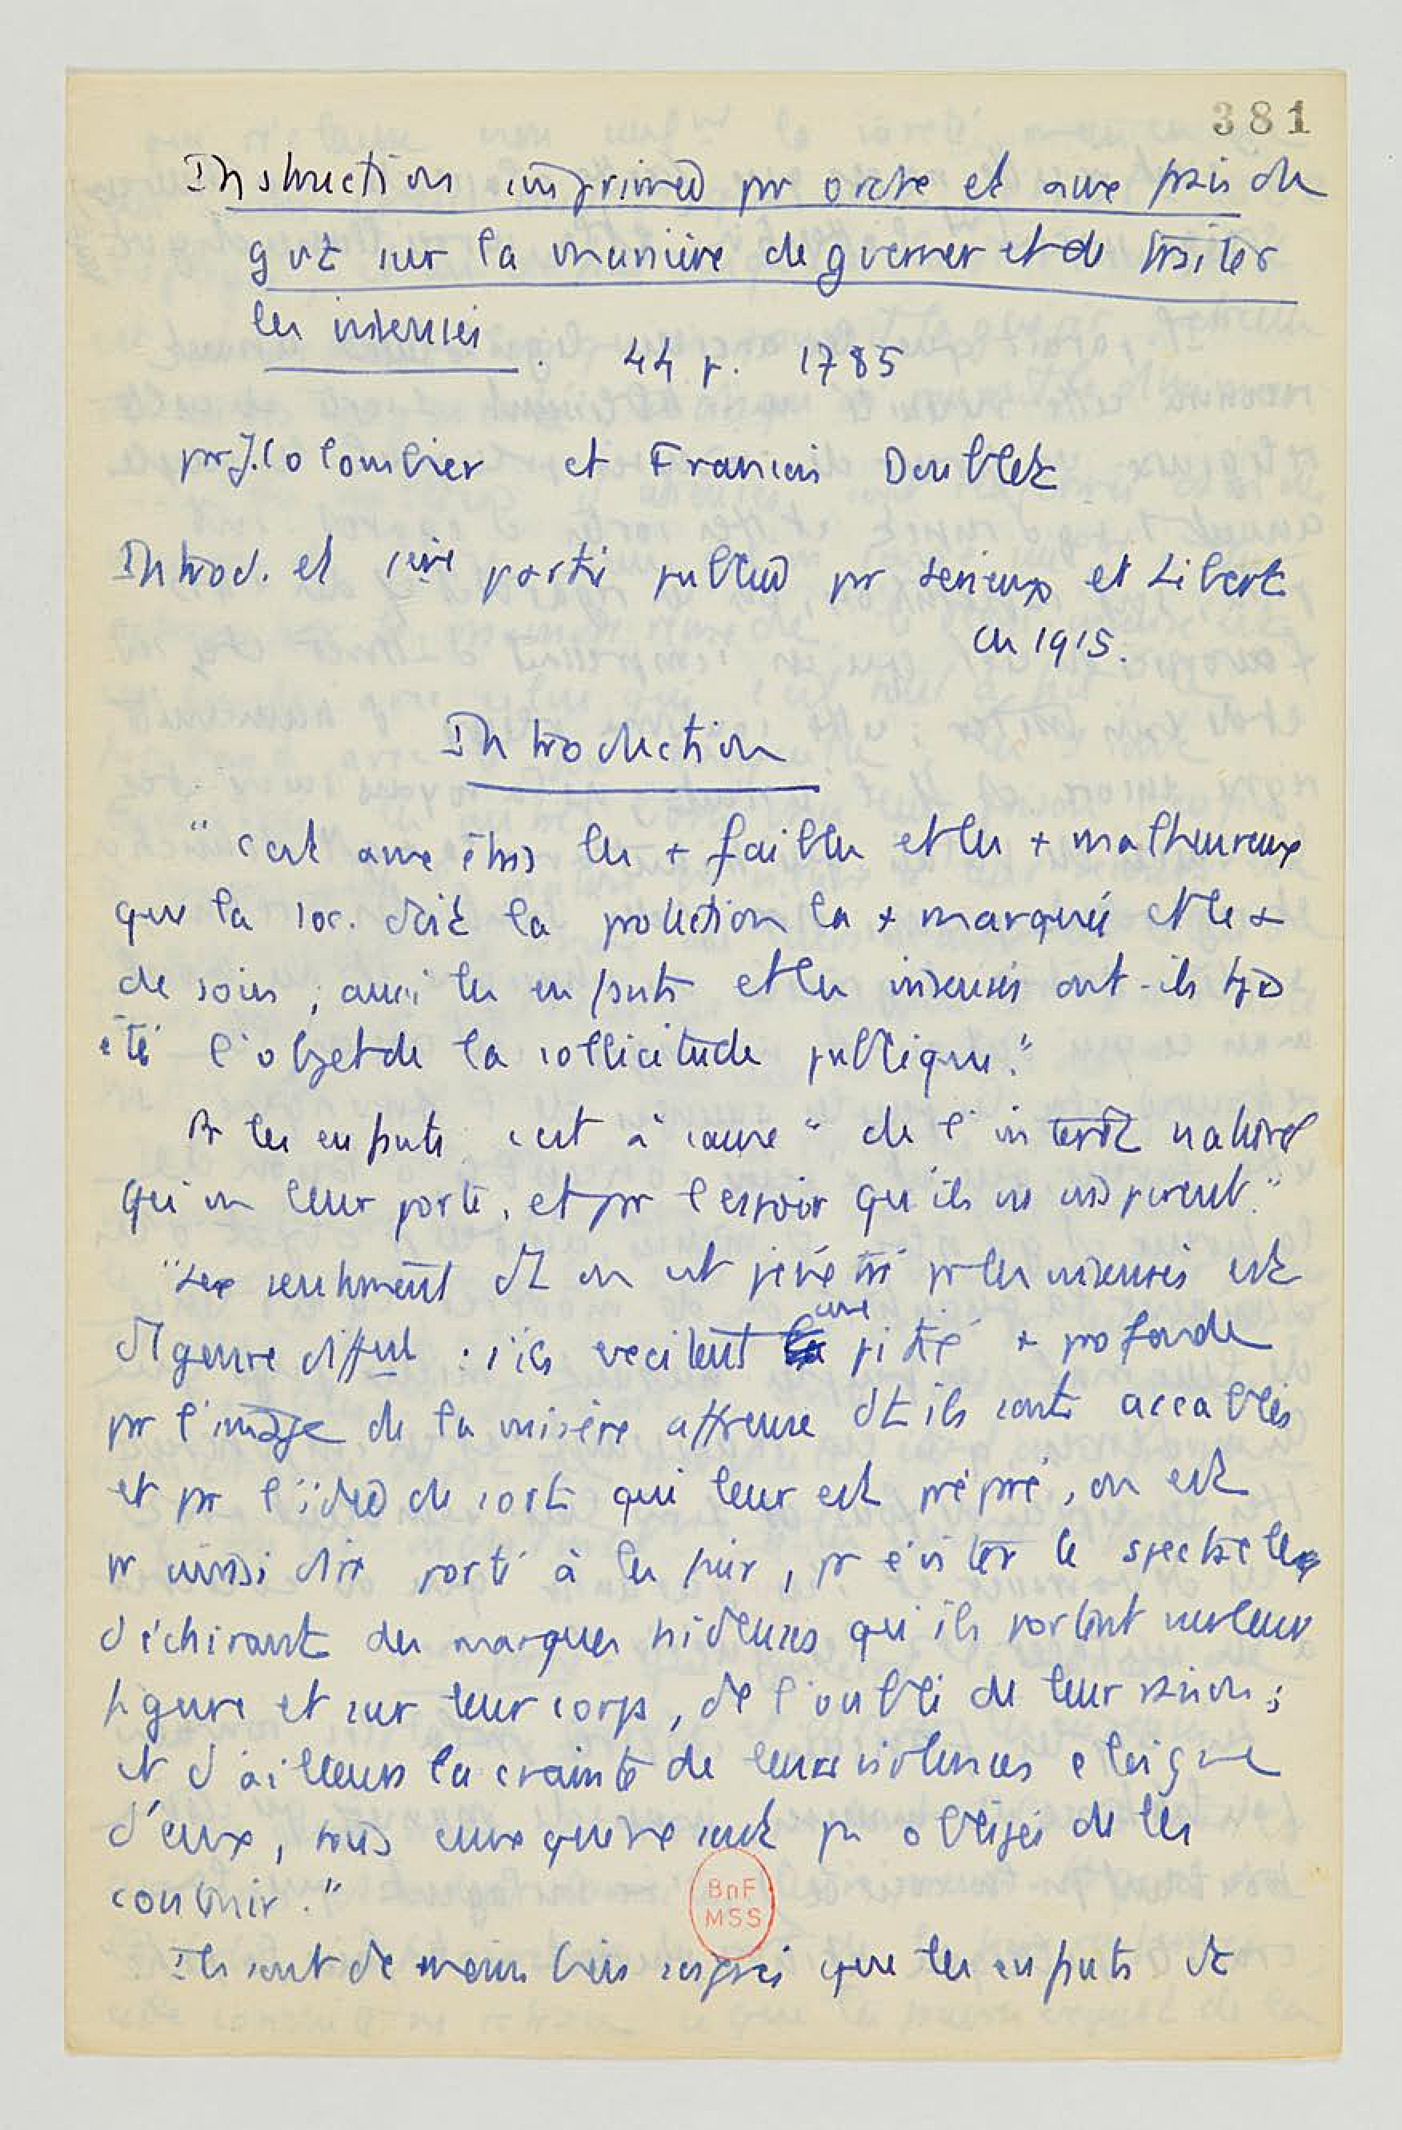 381
Instruction imprimée pr ordre et aux frais du
gvt sur la manière de gverner et de traiter
les insensés. 44 p. 1785
par J. Colombier et François Doublet
Introd. et 1ère partie publiée pr Serieux et Libert
en 1915.
Introduction
"C'est aux êtres les + faibles et les + malheureux
que la soc. doit la protection la + marquée et le +
de soins ; aussi les enfants et les insensés ont-ils tjs
été l'objet de la sollicitude publique."
Pr les enfants c'est à cause "de l'intérêt naturel
qu'on leur porte, et pr l'espoir qu'ils ns inspirent."
"Le sentiment dt on est pénétré pr les insensés est
d'1 genre différent : s'ils excitent une pitié + profonde
pr l'image de la misère affreuse dt ils sont accablés
et pr l'idée du sort qui leur est préparé, on est
pr ainsi dire porté à les fuir, pr éviter le spectacle
déchirant des marques hideuses qu'ils portent sur leur
figure et sur leur corps, de l'oubli de leur raison ;
et d'ailleurs la crainte de leurs violences éloigne
d'eux, tous ceux que ne sont pas obligés de les
contenir."
BnF
MSS
Ils sont de moins bien soignés que les enfants et